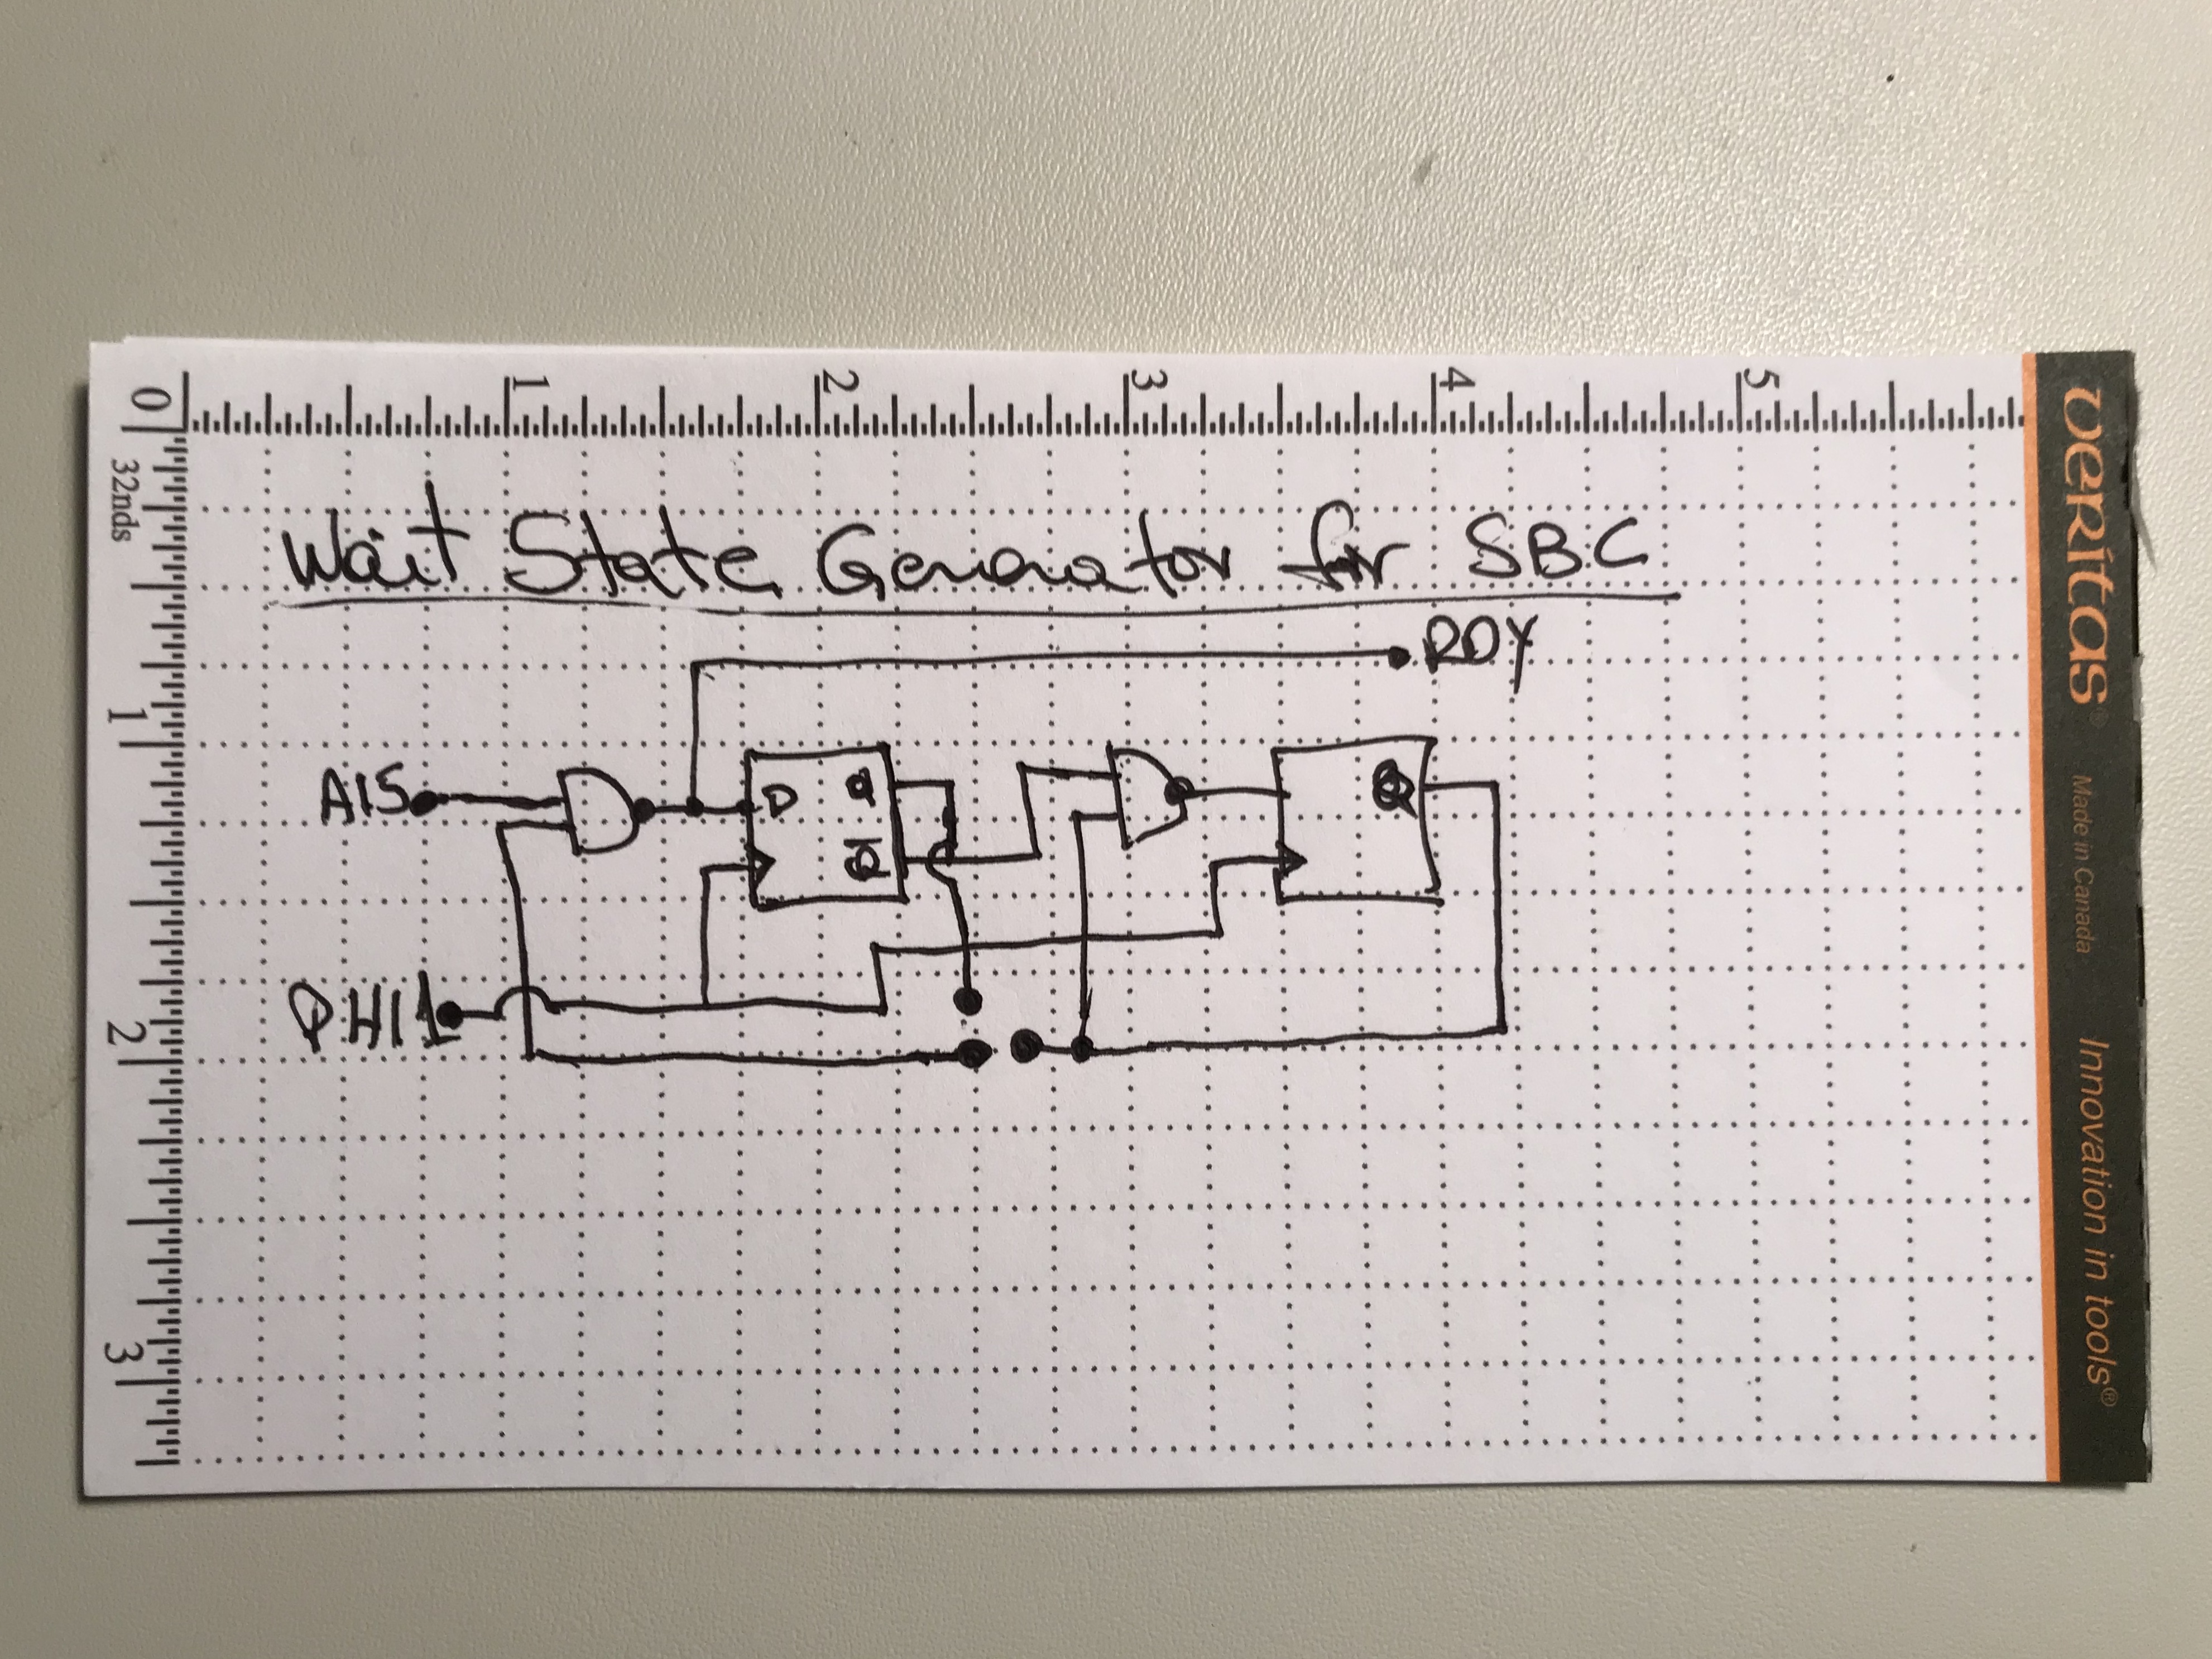 0 1 2 3 4 5
32nds
Wait State Generator for SBC
RDY
A15 D Q Q
Q
PHI1
1
2
3
veritas®
Made in Canada
Innovation in tools®